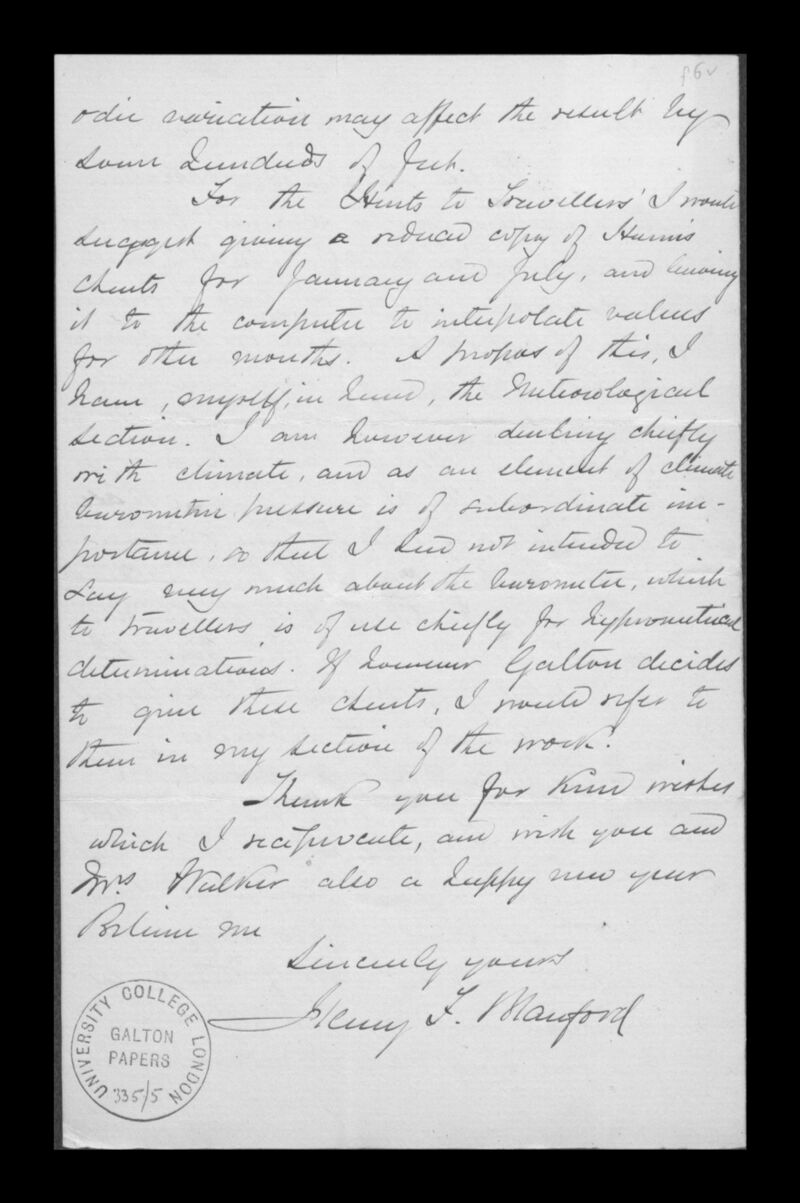 f6v
odic variation may affect the result by
some hundreds of feet.
For the 'Hints to Travellers' I would
suggest giving a reduced copy of Hann's
charts for January and July, and leaving
it to the computer to interpolate values
for other months. A propos of this, I
have, myself, in hand, the Meteorological
section. I am however dealing chiefly
with climate, and as an element of climate
barometric pressure is of subordinate im-
portance, so that I had not intended to
say very much about the barometer, which
to travellers is of use chiefly for hypsometrical
determinations. If however Galton decides
to give these charts, I would refer to
them in my section of the work.
Thank you for kind wishes
which I reciprocate, and wish you and
Mrs. Walker also a happy new year
Believe me
Sincerely yours
Henry F. Blanford
UNIVERSITY COLLEGE LONDON
GALTON
PAPERS
335/5